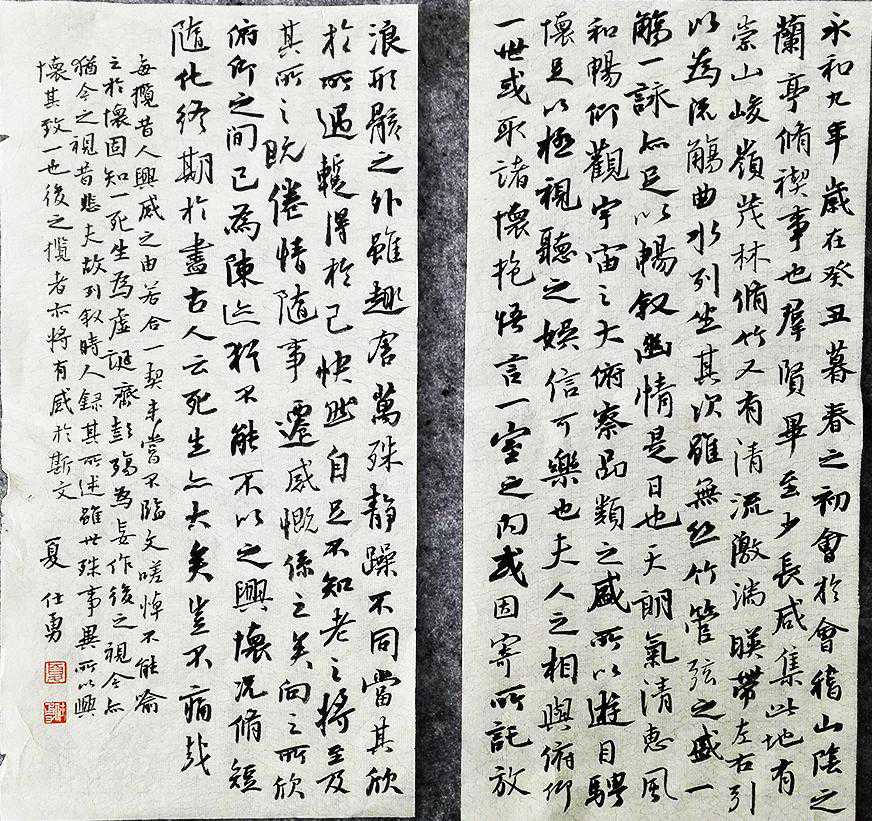 永和九年歲在癸丑暮春之初會於會稽山陰之
蘭亭脩稧事也羣賢畢至少長咸集此地有
崇山峻嶺茂林脩竹又有清流激湍暎帶左右引
以為流觴曲水列坐其次雖無絲竹管弦之盛一
觴一詠亦足以暢叙幽情是日也天朗氣清惠風
和暢仰觀宇宙之大俯察品類之盛所以遊目騁
懷足以極視聽之娛信可樂也夫人之相與俯仰
一世或取諸懷抱悟言一室之內或因寄所託放
浪形骸之外雖趣舍萬殊靜躁不同當其欣
於所遇蹔得於己快然自足不知老之將至及
其所之既倦情隨事遷感慨係之矣向之所欣
俯仰之間已為陳迹猶不能不以之興懷況脩短
隨化終期於盡古人云死生亦大矣豈不痛哉
每攬昔人興感之由若合一契未嘗不臨文嗟悼不能喻
之於懷固知一死生為虛誕齊彭殤為妄作後之視今亦
猶今之視昔悲夫故列叙時人錄其所述雖世殊事異所以興
懷其致一也後之攬者亦將有感於斯文 夏仕勇